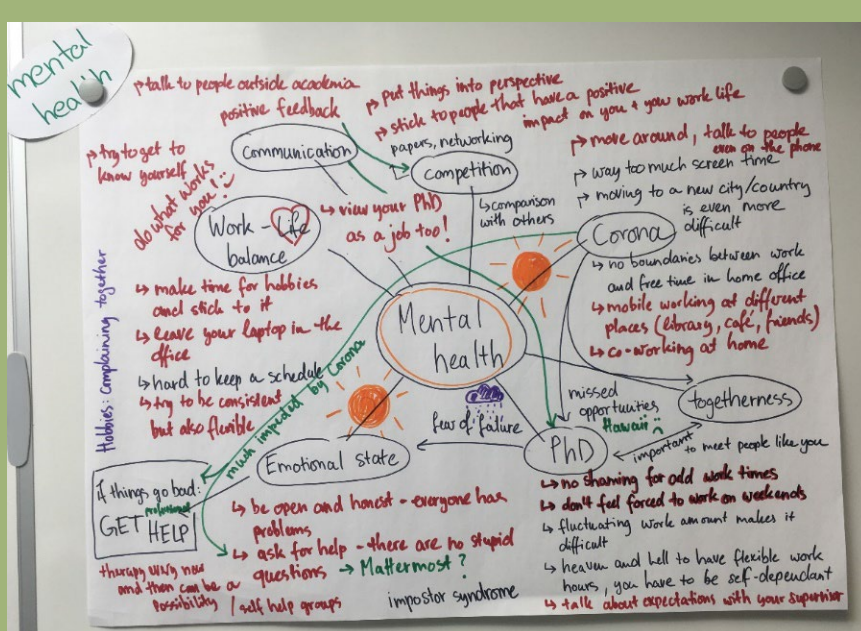 mental
health
↱ talk to people outside academia
positive feedback
↱ put things into perspective
↱ stick to people that have a positive
impact on you + your work life
papers, networking
communication
competition
↳ comparison
with others
↱ try to get to
know yourself
do what works
for you! :)
Work-Life
balance
↳ view your PhD
as a job too!
↳ make time for hobbies
and stick to it
↳ leave your laptop in the
office
↳ hard to keep a schedule
↳ try to be consistent
but also flexible
Hobbies: Complaining together
↱ move around, talk to people
even on the phone
↱ way too much screen time
↱ moving to a new city/country
is even more
difficult
Corona
↳ no boundaries between work
and free time in home office
↳ mobile working at different
places (library, café, friends)
↳ co-working at home
Mental
health
much impacted by Corona
fear of failure
missed
opportunities
Hawaii :(
togetherness
important
to meet people like you
Emotional state
PhD
if things go bad:
professional
GET HELP
therapy every now
and then can be a
possibility / self help groups
↳ be open and honest - everyone has
problems
↳ ask for help - there are no stupid
questions → Mattermost?
impostor syndrome
↳ no shaming for odd work times
↳ don't feel forced to work on weekends
↳ fluctuating work amount makes it
difficult
↳ heaven and hell to have flexible work
hours, you have to be self-dependant
↳ talk about expectations with your supervisor